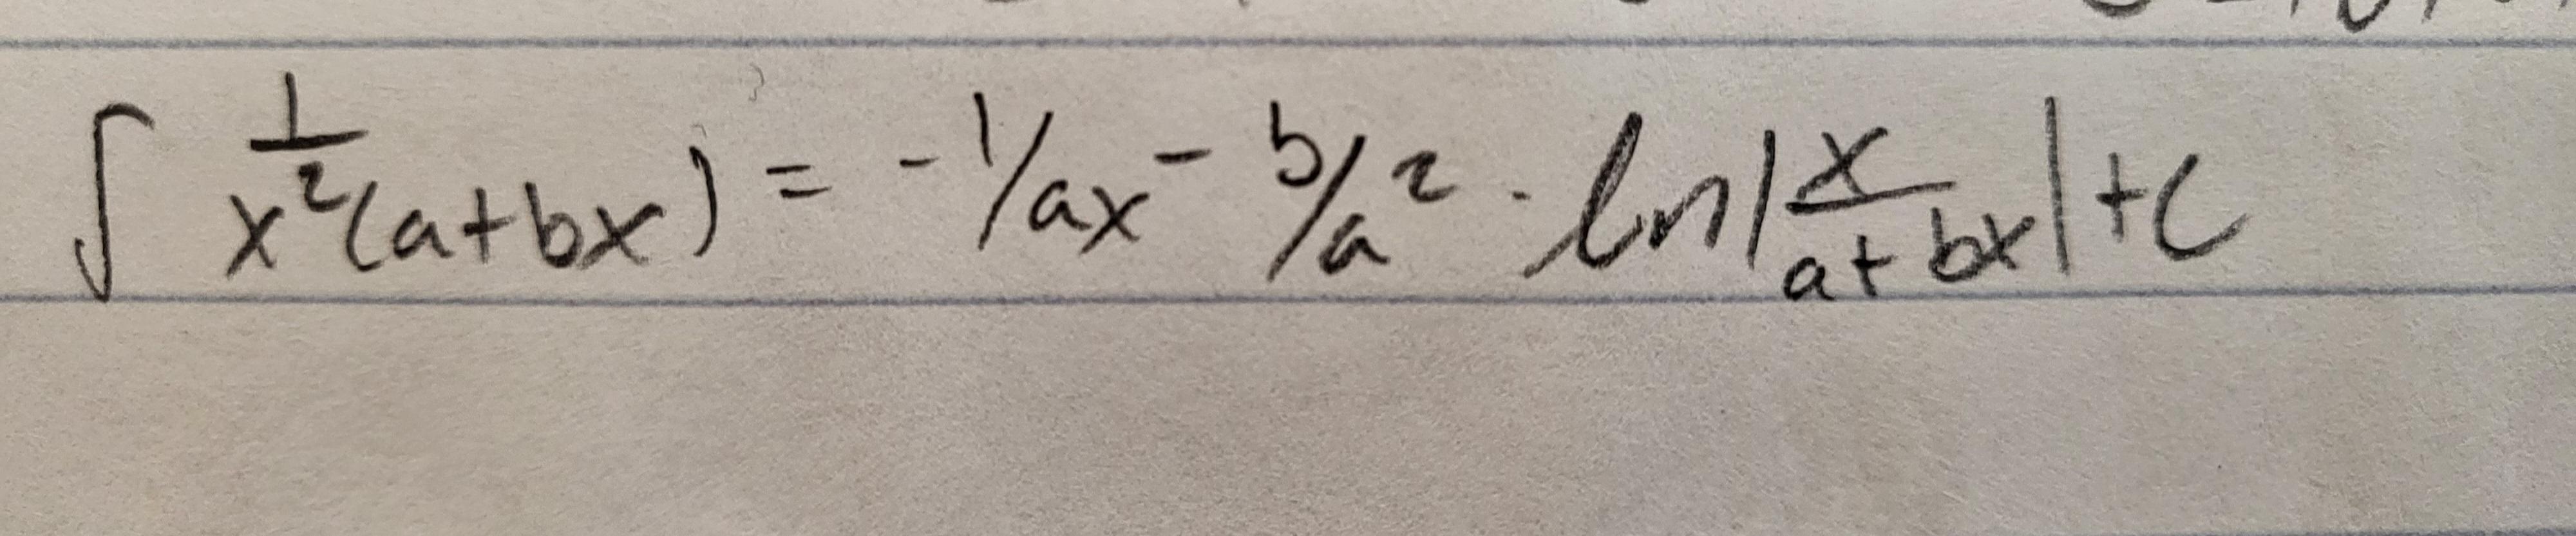 ∫ 1/x²(a+bx) = -1/ax - b/a² · ln|x/a+bx| + C